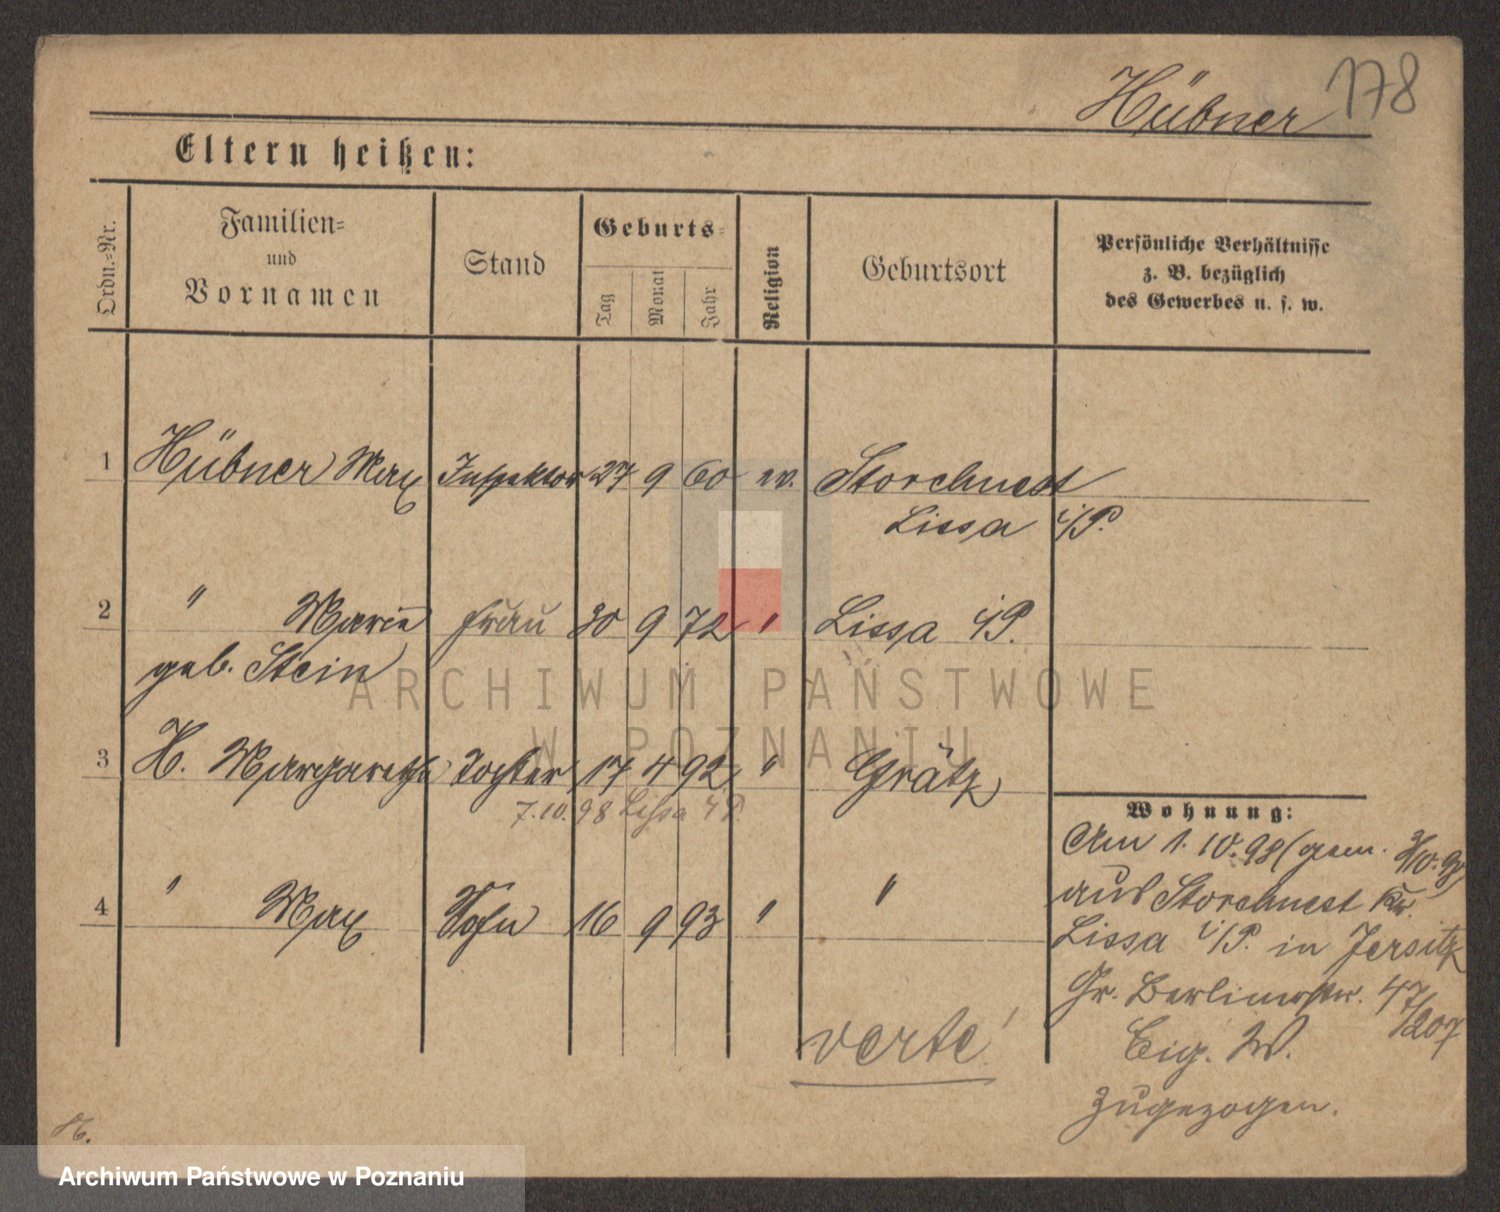 178
Hübner
Eltern heißen:
Ordn.-Nr.
Familien-
und
Vornamen
Stand
Geburts-
Tag
Monat
Jahr
Religion
Geburtsort
Persönliche Verhältnisse
z. B. bezüglich
des Gewerbes u. s. w.
1 Hübner Max Inspektor 27 9 60 ev. Storchnest
Lissa i/P.
2 " Marie Frau 30 9 72 " Lissa i/P.
geb. Stein
3 H. Margarethe Tochter 17 4 92 " Grätz
7.10.98 Lissa i/P.
4 " Max Sohn 16 9 93 " "
Wohnung:
Am 1.10.98 (gem. 3/10.98)
aus Storchnest Kr.
Lissa i/P. in Jersitz
Gr. Berlinerstr. 47/207
Eig. W.
zugezogen.
verte!
ARCHIWUM PAŃSTWOWE
W POZNANIU
Archiwum Państwowe w Poznaniu